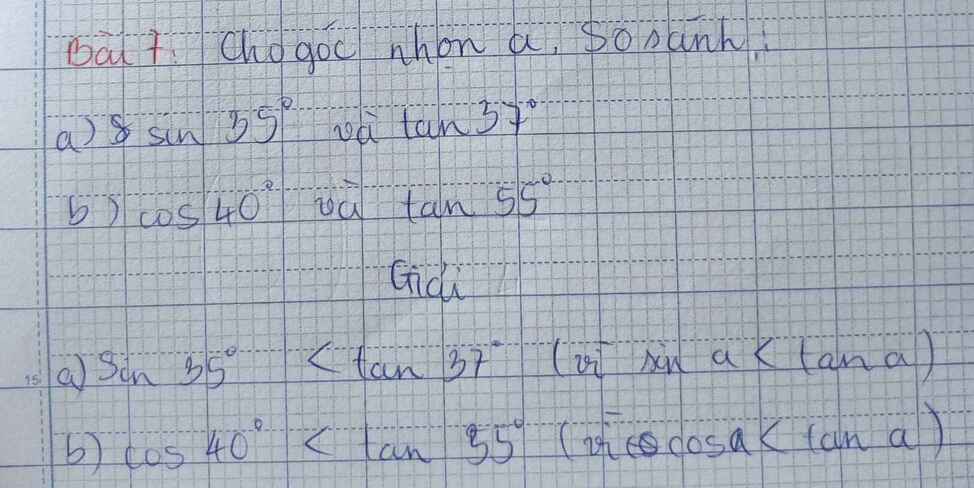 Bài 7. Cho góc nhọn a, so sánh:
a) sin 35° và tan 37°
b) cos 40° và tan 55°
Giải
a) Sin 35° < tan 37° (vì sin a < tan a)
b) cos 40° < tan 55° (vì cosa < tan a)